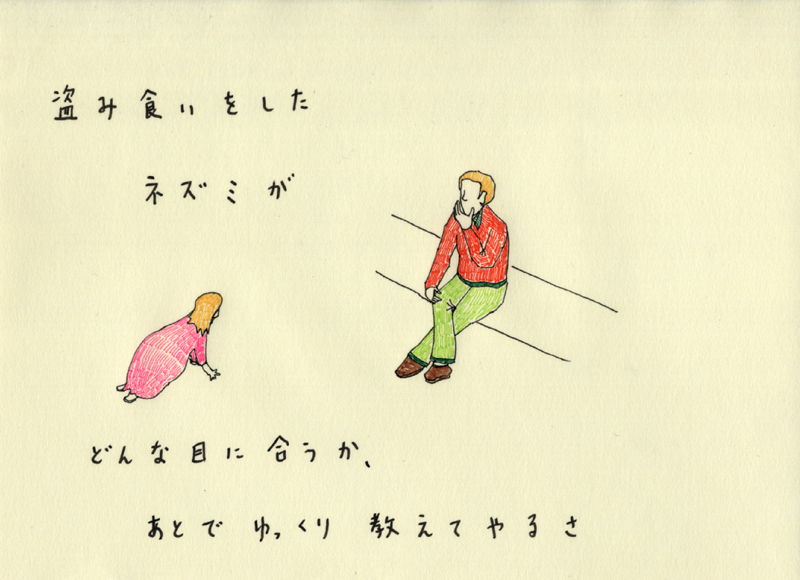 盗み食いをした
ネズミが
どんな目に合うか、
あとで ゆっくり 教えてやるさ